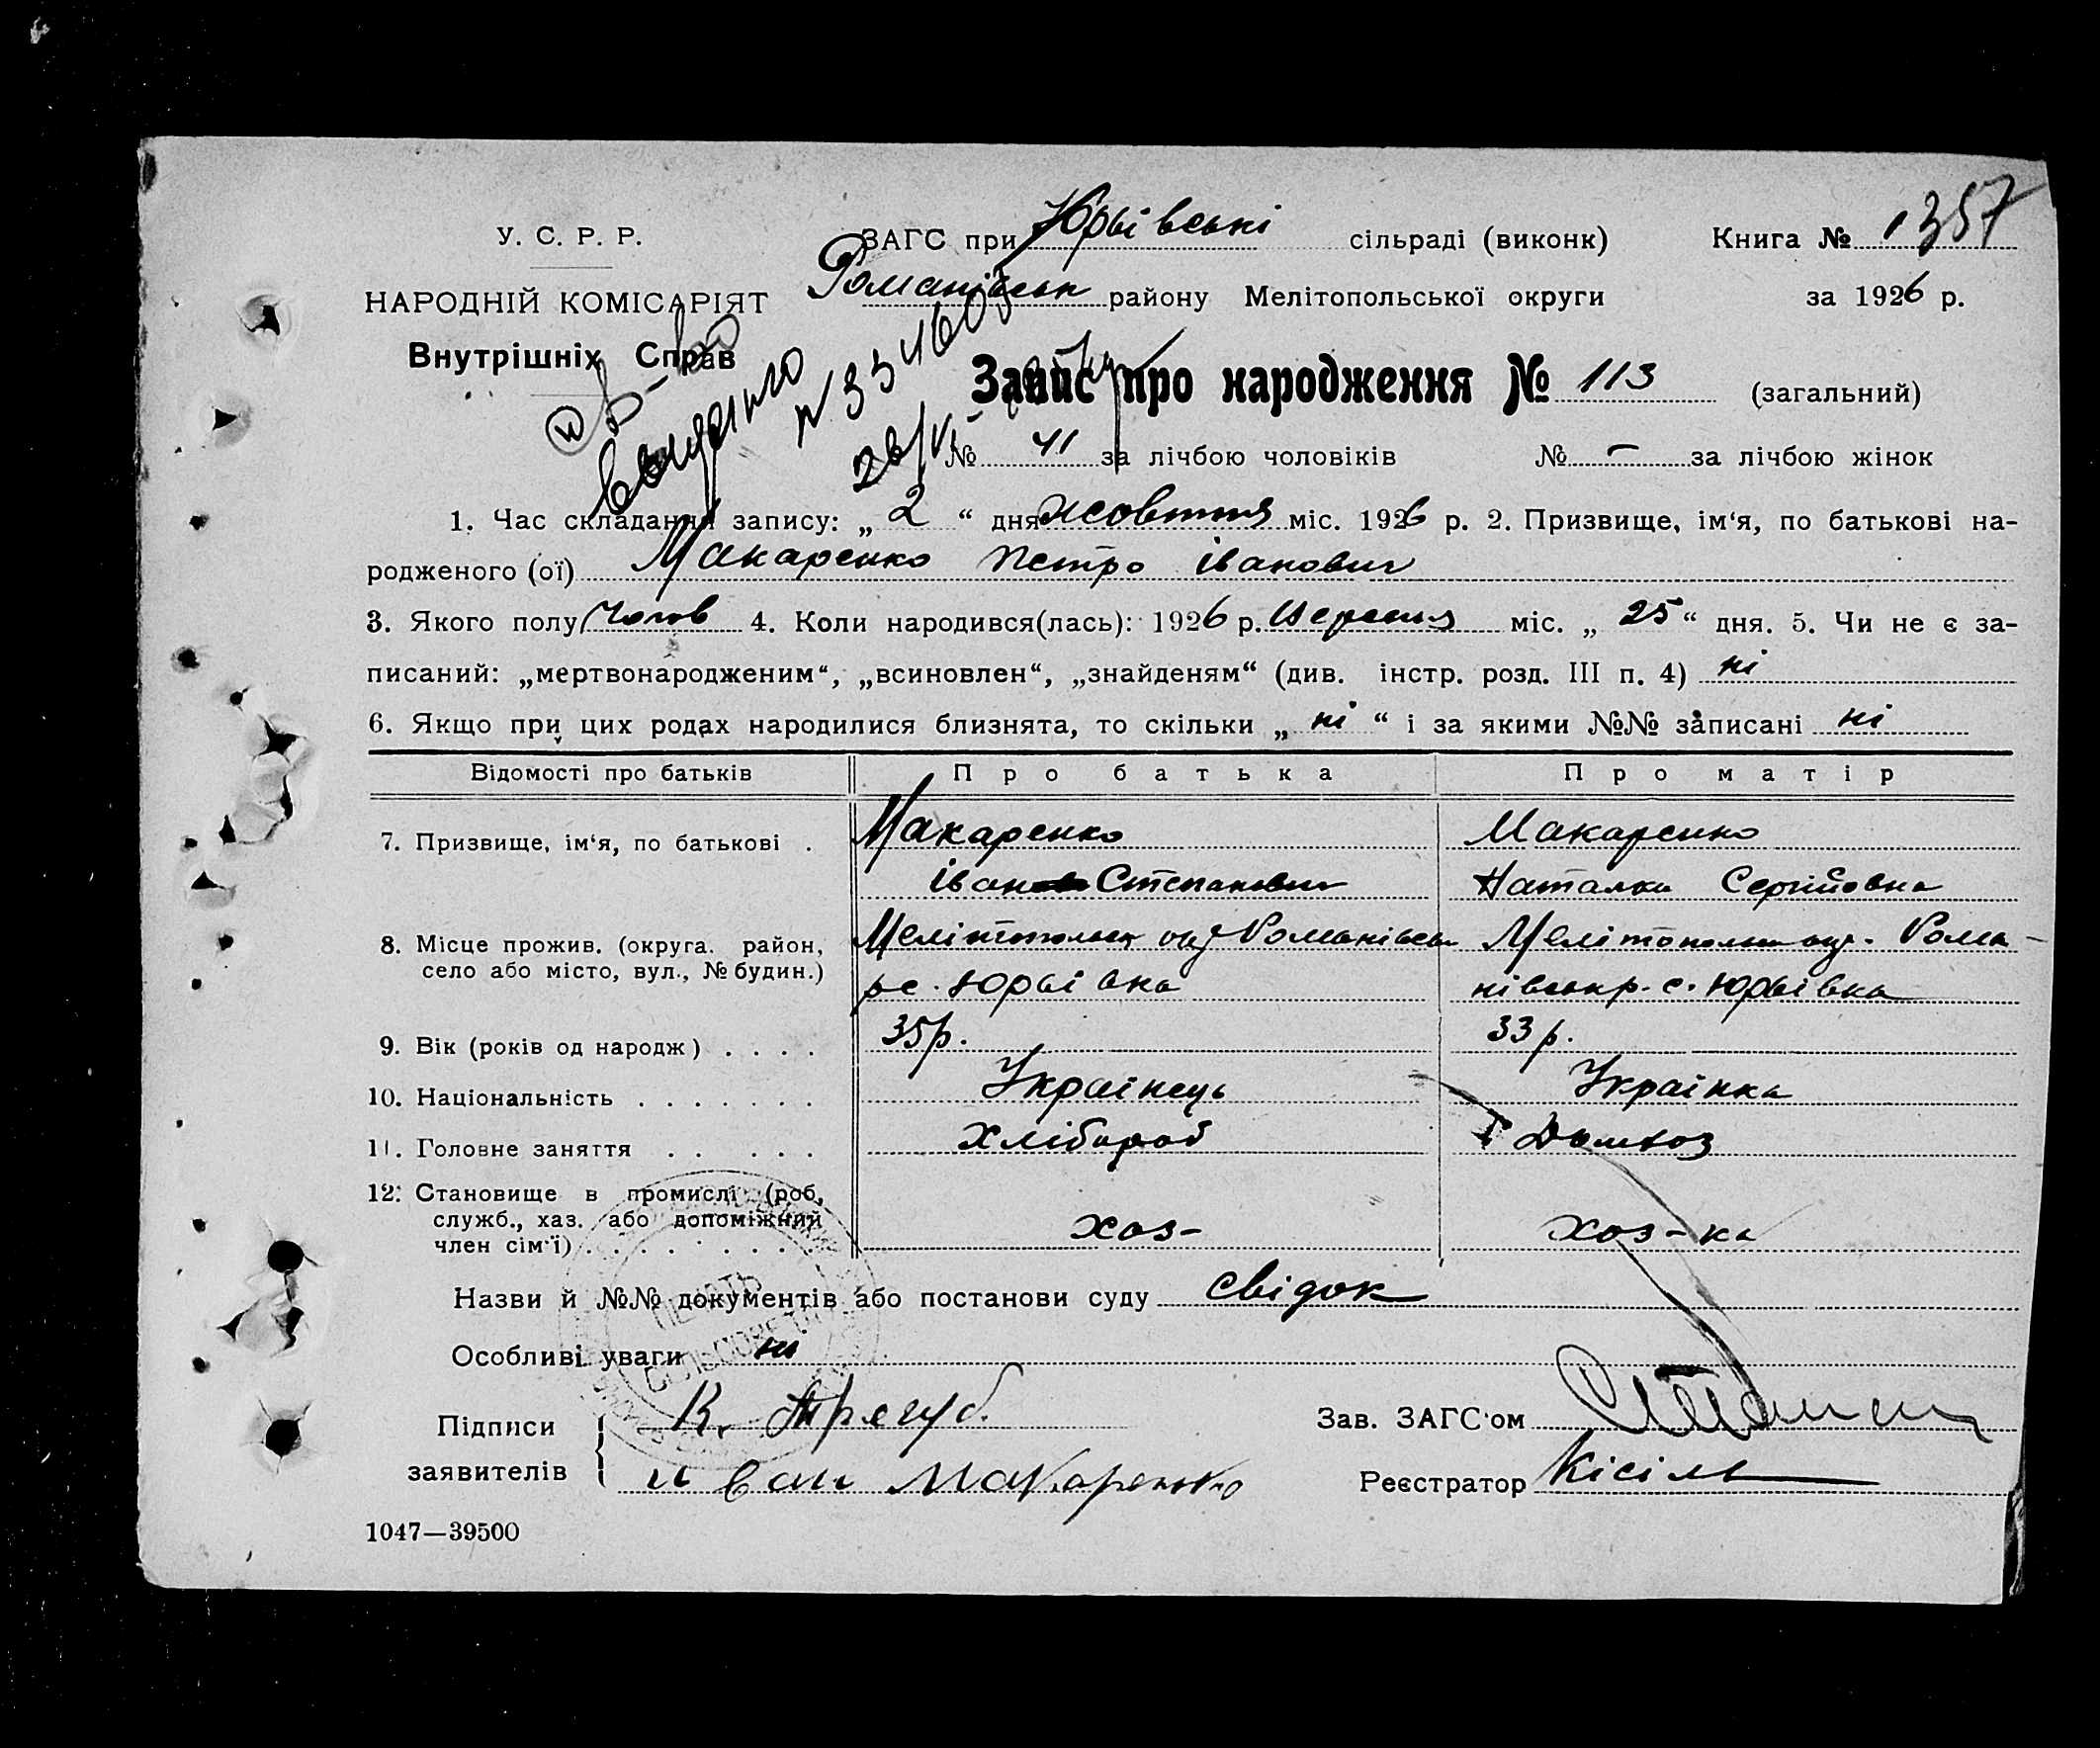 У. С. Р. Р.
НАРОДНІЙ КОМІСАРІЯТ
Внутрішніх Справ
ЗАГС при Юрьівські сільраді (виконк)
Романівськ району Мелітопольської округи
Книга № 1357
за 1926 р.
С-во
выдано
N 334160
Запис про народження № 113 (загальний)
№ 41 за лічбою чоловіків № – за лічбою жінок
1. Час складання запису: „ 2 “ дня жовтня міс. 1926 р. 2. Призвище, ім‘я, по батькові на-
родженого (ої) Макаренко Петро Іванович
3. Якого полу Чолов 4. Коли народився(лась): 1926 р. Вересня міс. „ 25 “ дня. 5. Чи не є за-
писаний: „мертвонародженим“, „всиновлен“, „знайденям“ (див. інстр. розд. III п. 4) ні
6. Якщо при цих родах народилися близнята, то скільки „ ні “ і за якими №№ записані ні
Відомості про батьків Про батька Про матір
7. Призвище, ім‘я, по батькові . Макаренко Макаренко
Іван Степанович Наталка Сергійовна
8. Місце прожив. (округа. район, Мелітопольськ окр Романівськ Мелітопольськ окр. Рома-
село або місто, вул., № будин.) р с. Юрьівка нівськ р. с. Юрьівка
9. Вік (років од народж) . . . . 35 р. 33 р.
10. Національність . . . . . . . Українець Українка
11. Головне заняття . . . . . Хлібороб Домхоз
12. Становище в промислі (роб,
служб., хаз. або допоміжний хоз- хоз-ка
член сім‘ї) . . . . . . .
Назви й №№ документів або постанови суду Свідок
Особливі уваги ні
ПЕЧАТЬ
СІЛЬСОВЕТА
Підписи К. Трегуб. Зав. ЗАГС‘ом
заявителів Иван Макаренко Реєстратор Кісіль
1047—39500